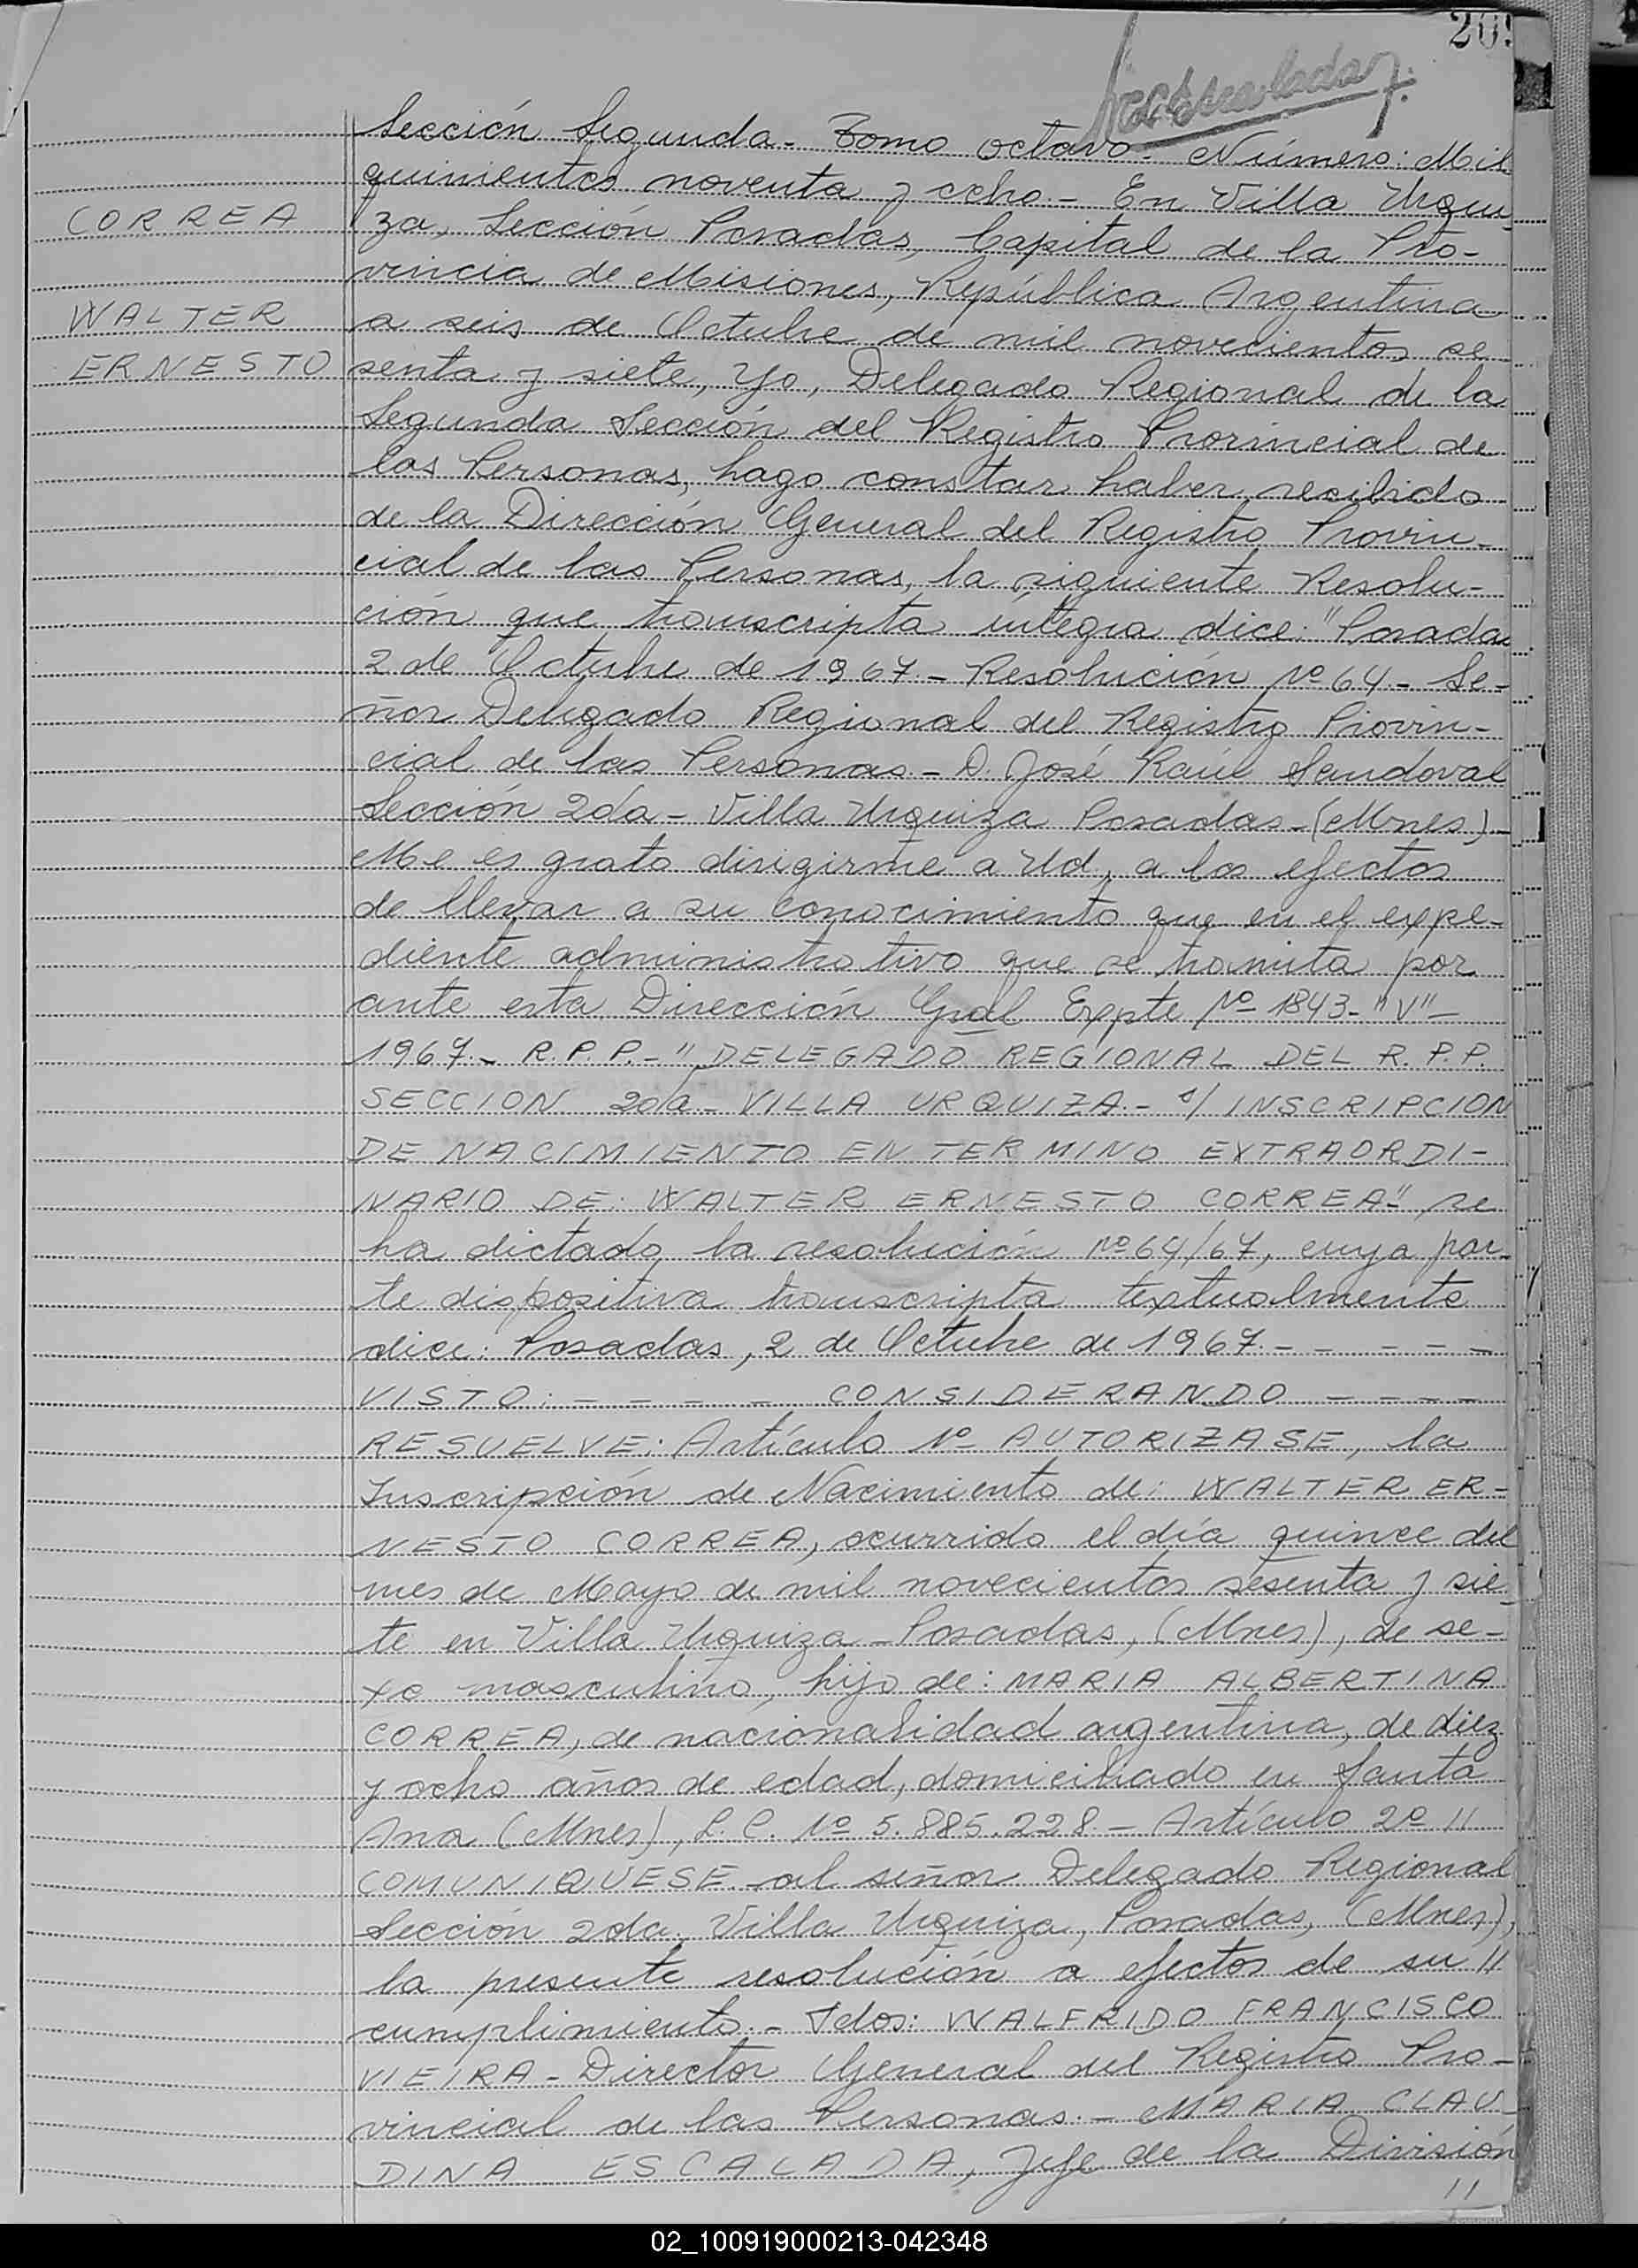 209
Sección Segunda - Tomo octavo - Número: Mil
quinientos noventa y ocho. - En Villa Urqui-
za, Sección Posadas, Capital de la Pro-
vincia de Misiones, República Argentina
a seis de Octubre de mil novecientos se
senta y siete, Yo, Delegado Regional de la
Segunda Sección del Registro Provincial de
las Personas, hago constar haber recibido
de la Dirección General del Registro Provin-
cial de las Personas, la siguiente Resolu-
ción que transcripta íntegra dice: "Posadas
2 de Octubre de 1967.- Resolución Nº 64 - Se-
ñor Delegado Regional del Registro Provin-
cial de las Personas - D. José Raúl Sandoval
Sección 2da - Villa Urquiza Posadas - (Mnes) -
Me es grato dirigirme a Ud, a los efectos
de llevar a su conocimiento que en el expe-
diente administrativo que se tramita por
ante esta Dirección Gral Expte Nº 1843 - "V" -
1967.- R.P.P. - "DELEGADO REGIONAL DEL R.P.P.
SECCION 2da - VILLA URQUIZA.- s/ INSCRIPCION
DE NACIMIENTO EN TERMINO EXTRAORDI-
NARIO DE: WALTER ERNESTO CORREA" se
ha dictado la resolución Nº 64/67, cuya par-
te dispositiva transcripta textualmente
dice: Posadas, 2 de Octubre de 1967.- - - - - -
VISTO: - - - - CONSIDERANDO - - - -
RESUELVE: Artículo 1º AUTORIZASE, la
Inscripción de Nacimiento de: WALTER ER-
NESTO CORREA, ocurrido el día quince del
mes de Mayo de mil novecientos sesenta y sie
te en Villa Urquiza - Posadas, (Mnes), de se-
xo masculino, hijo de: MARIA ALBERTINA
CORREA, de nacionalidad argentina, de diez
y ocho años de edad, domiciliado en Santa
Ana (Mnes), L.C. Nº 5.885.228.- Artículo 2º //
COMUNIQUESE al señor Delegado Regional
Sección 2da, Villa Urquiza, Posadas, (Mnes),
la presente resolución a efectos de su //
cumplimiento.- Fdos: WALFRIDO FRANCISCO
VIEIRA - Director General del Registro Pro-
vincial de las Personas.- MARIA CLAU-
DINA ESCALADA, Jefe de la División
//
CORREA
WALTER
ERNESTO
02_100919000213-042348